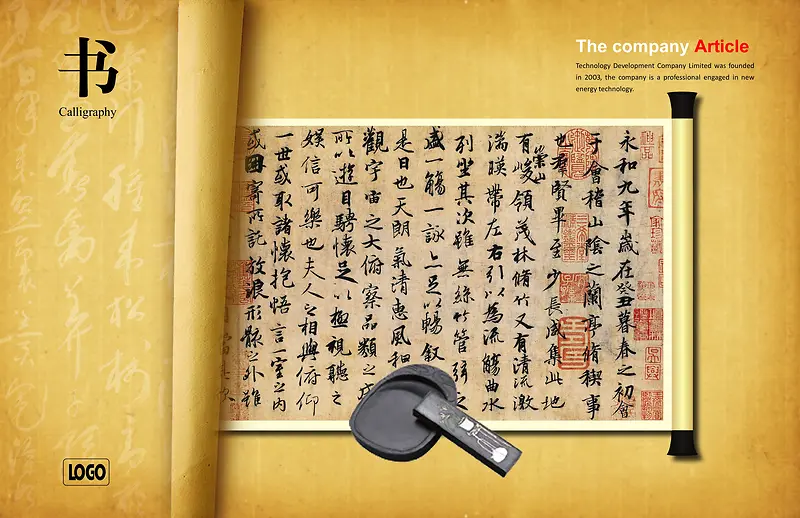 书
Calligraphy
The company Article
Technology Development Company Limited was founded
in 2003, the company is a professional engaged in new
energy technology.
永和九年歲在癸丑暮春之初會
于會稽山陰之蘭亭脩稧事
也羣賢畢至少長咸集此地
有崇山峻領茂林脩竹又有清流激
湍暎帶左右引以為流觴曲水
列坐其次雖無絲竹管弦之
盛一觴一詠亦足以暢敘
是日也天朗氣清惠風和
觀宇宙之大俯察品類之盛
所以遊目騁懷足以極視聽之
娛信可樂也夫人之相與俯仰
一世或取諸懷抱悟言一室之內
或因寄所託放浪形骸之外雖
LOGO